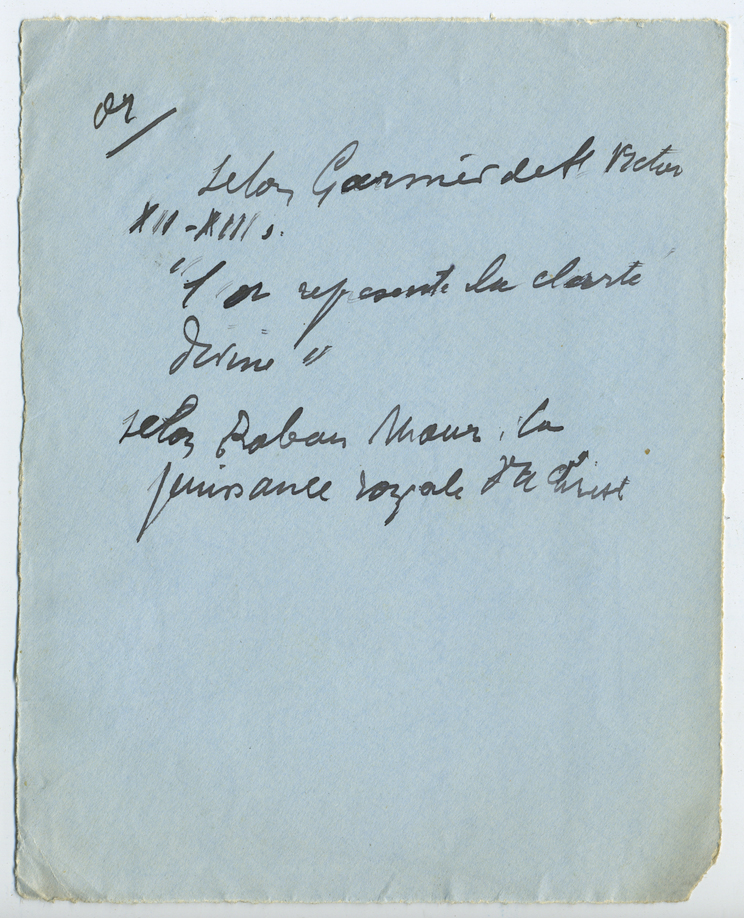 or/
selon Garnier de St Victor
XII-XIII s.
"l'or represente la clarté
divine"
selon Raban Maur, la
puissance royale du Christ